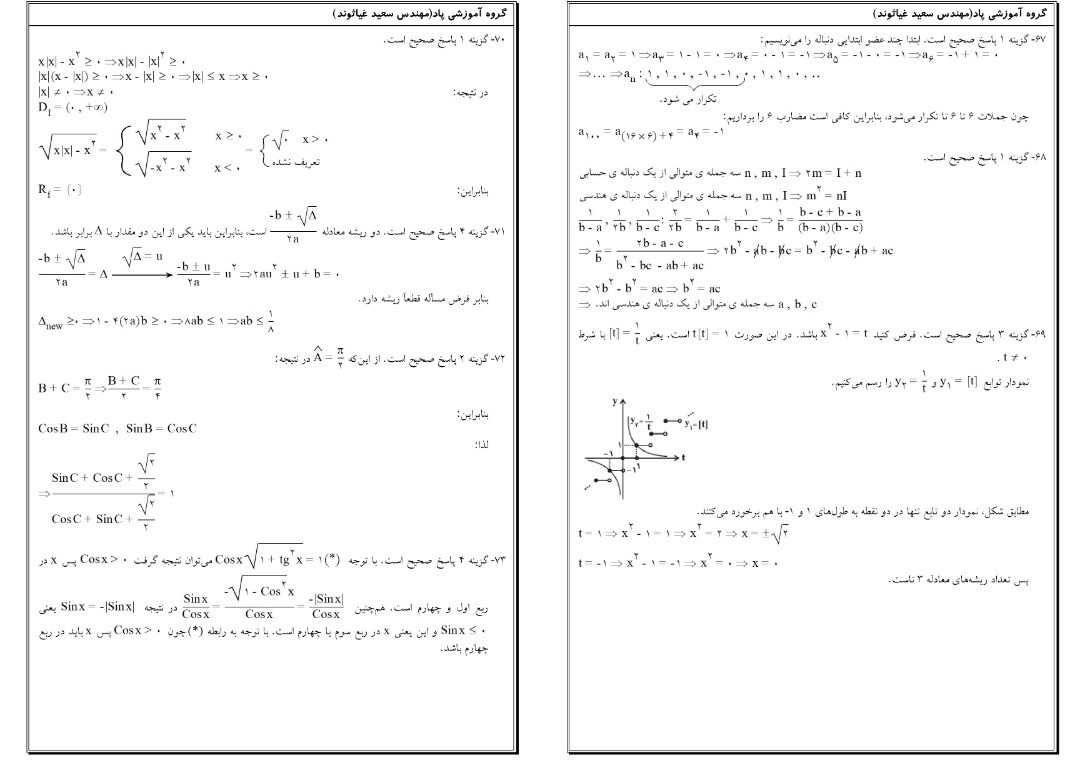 گروه آموزشی پاد(مهندس سعید غیاثوند)
۶۷- گزینه ۱ پاسخ صحیح است. ابتدا چند عضو ابتدایی دنباله را می‌نویسیم:
a₁ = a₂ = ۱ ⇒ a₃ = ۱ - ۱ = ۰ ⇒ a₄ = ۰ - ۱ = -۱ ⇒ a₅ = -۱ - ۰ = -۱ ⇒ a₆ = -۱ + ۱ = ۰
⇒ ... ⇒ aₙ : ۱ , ۱ , ۰ , -۱ , -۱ , ۰ , ۱ , ۱ , ۰ , ..
تکرار می شود.
چون جملات ۶ تا ۶ تا تکرار می‌شود، بنابراین کافی است مضارب ۶ را برداریم:
a₁₀₀ = a₍₁₆×₆₎₊₄ = a₄ = -۱
۶۸- گزینه ۱ پاسخ صحیح است.
n , m , I ⇒ ۲m = I + n سه جمله ی متوالی از یک دنباله ی حسابی
n , m , I ⇒ m² = nI سه جمله ی متوالی از یک دنباله ی هندسی
۱/(b - a) , ۱/۲b , ۱/(b - c) : ۲/۲b = ۱/(b - a) + ۱/(b - c) ⇒ ۱/b = (b - c + b - a)/((b - a)(b - c))
⇒ ۱/b = (۲b - a - c)/(b² - bc - ab + ac) ⇒ ۲b² - ab - bc = b² - bc - ab + ac
⇒ ۲b² - b² = ac ⇒ b² = ac
⇒ a , b , c سه جمله ی متوالی از یک دنباله ی هندسی اند.
۶۹- گزینه ۳ پاسخ صحیح است. فرض کنید x² - ۱ = t باشد. در این صورت t[t] = ۱ است. یعنی [t] = ۱/t با شرط
t ≠ ۰ .
نمودار توابع y₁ = [t] و y₂ = ۱/t را رسم می‌کنیم.
y
y₂=۱/t
y₁=[t]
۱
-۱
t
-۱
۱
مطابق شکل، نمودار دو تابع تنها در دو نقطه به طول‌های ۱ و ۱- با هم برخورد می‌کنند.
t = ۱ ⇒ x² - ۱ = ۱ ⇒ x² = ۲ ⇒ x = ±√۲
t = -۱ ⇒ x² - ۱ = -۱ ⇒ x² = ۰ ⇒ x = ۰
پس تعداد ریشه‌های معادله ۳ تاست.
گروه آموزشی پاد(مهندس سعید غیاثوند)
۷۰- گزینه ۱ پاسخ صحیح است.
x|x| - x² ≥ ۰ ⇒ x|x| - |x|² ≥ ۰
|x|(x - |x|) ≥ ۰ ⇒ x - |x| ≥ ۰ ⇒ |x| ≤ x ⇒ x ≥ ۰
|x| ≠ ۰ ⇒ x ≠ ۰ در نتیجه:
D_f = (۰ , +∞)
√(x|x| - x²) = { √(x² - x²) x ≥ ۰ ; √(-x² - x²) x < ۰ = { √۰ x > ۰ ; تعریف نشده
R_f = {۰} بنابراین:
۷۱- گزینه ۴ پاسخ صحیح است. دو ریشه معادله (-b ± √Δ)/۲a است، بنابراین باید یکی از این دو مقدار با Δ برابر باشد.
(-b ± √Δ)/۲a = Δ √Δ = u → (-b ± u)/۲a = u² ⇒ ۲au² ± u + b = ۰
بنابر فرض مسأله قطعاً ریشه دارد.
Δnew ≥ ۰ ⇒ ۱ - ۴(۲a)b ≥ ۰ ⇒ ۸ab ≤ ۱ ⇒ ab ≤ ۱/۸
۷۲- گزینه ۲ پاسخ صحیح است. از این‌که Â = π/۲ در نتیجه:
B + C = π/۲ ⇒ (B + C)/۲ = π/۴
بنابراین:
CosB = SinC , SinB = CosC
لذا:
⇒ (SinC + CosC + √۲/۲)/(CosC + SinC + √۲/۲) = ۱
۷۳- گزینه ۴ پاسخ صحیح است. با توجه Cosx√(۱ + tg²x) = ۱ (*) می‌توان نتیجه گرفت Cosx > ۰ پس x در
ربع اول و چهارم است. هم‌چنین Sinx/Cosx = -√(۱ - Cos²x)/Cosx = -|Sinx|/Cosx در نتیجه Sinx = -|Sinx| یعنی
Sinx ≤ ۰ و این یعنی x در ربع سوم یا چهارم است. با توجه به رابطه (*) چون Cosx > ۰ پس x باید در ربع
چهارم باشد.